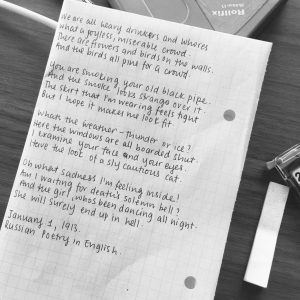 Rollfix
We are all heavy drinkers and whores
what a joyless, miserable crowd.
There are flowers and birds on the walls.
And the birds all pine for a crowd.
You are smoking your old black pipe.
And the smoke looks strange over it.
The skirt that I'm wearing feels tight
But I hope it makes me look fit.
What the weather - thunder or ice?
Here the windows are all boarded shut.
I examine your face and your eyes.
Have the look of a sly cautious cat.
Oh what sadness I'm feeling inside!
Am I waiting for death's solemn bell?
And the girl, whos been dancing all night.
She will surely end up in hell.
January 1, 1913.
Russian Poetry in English.